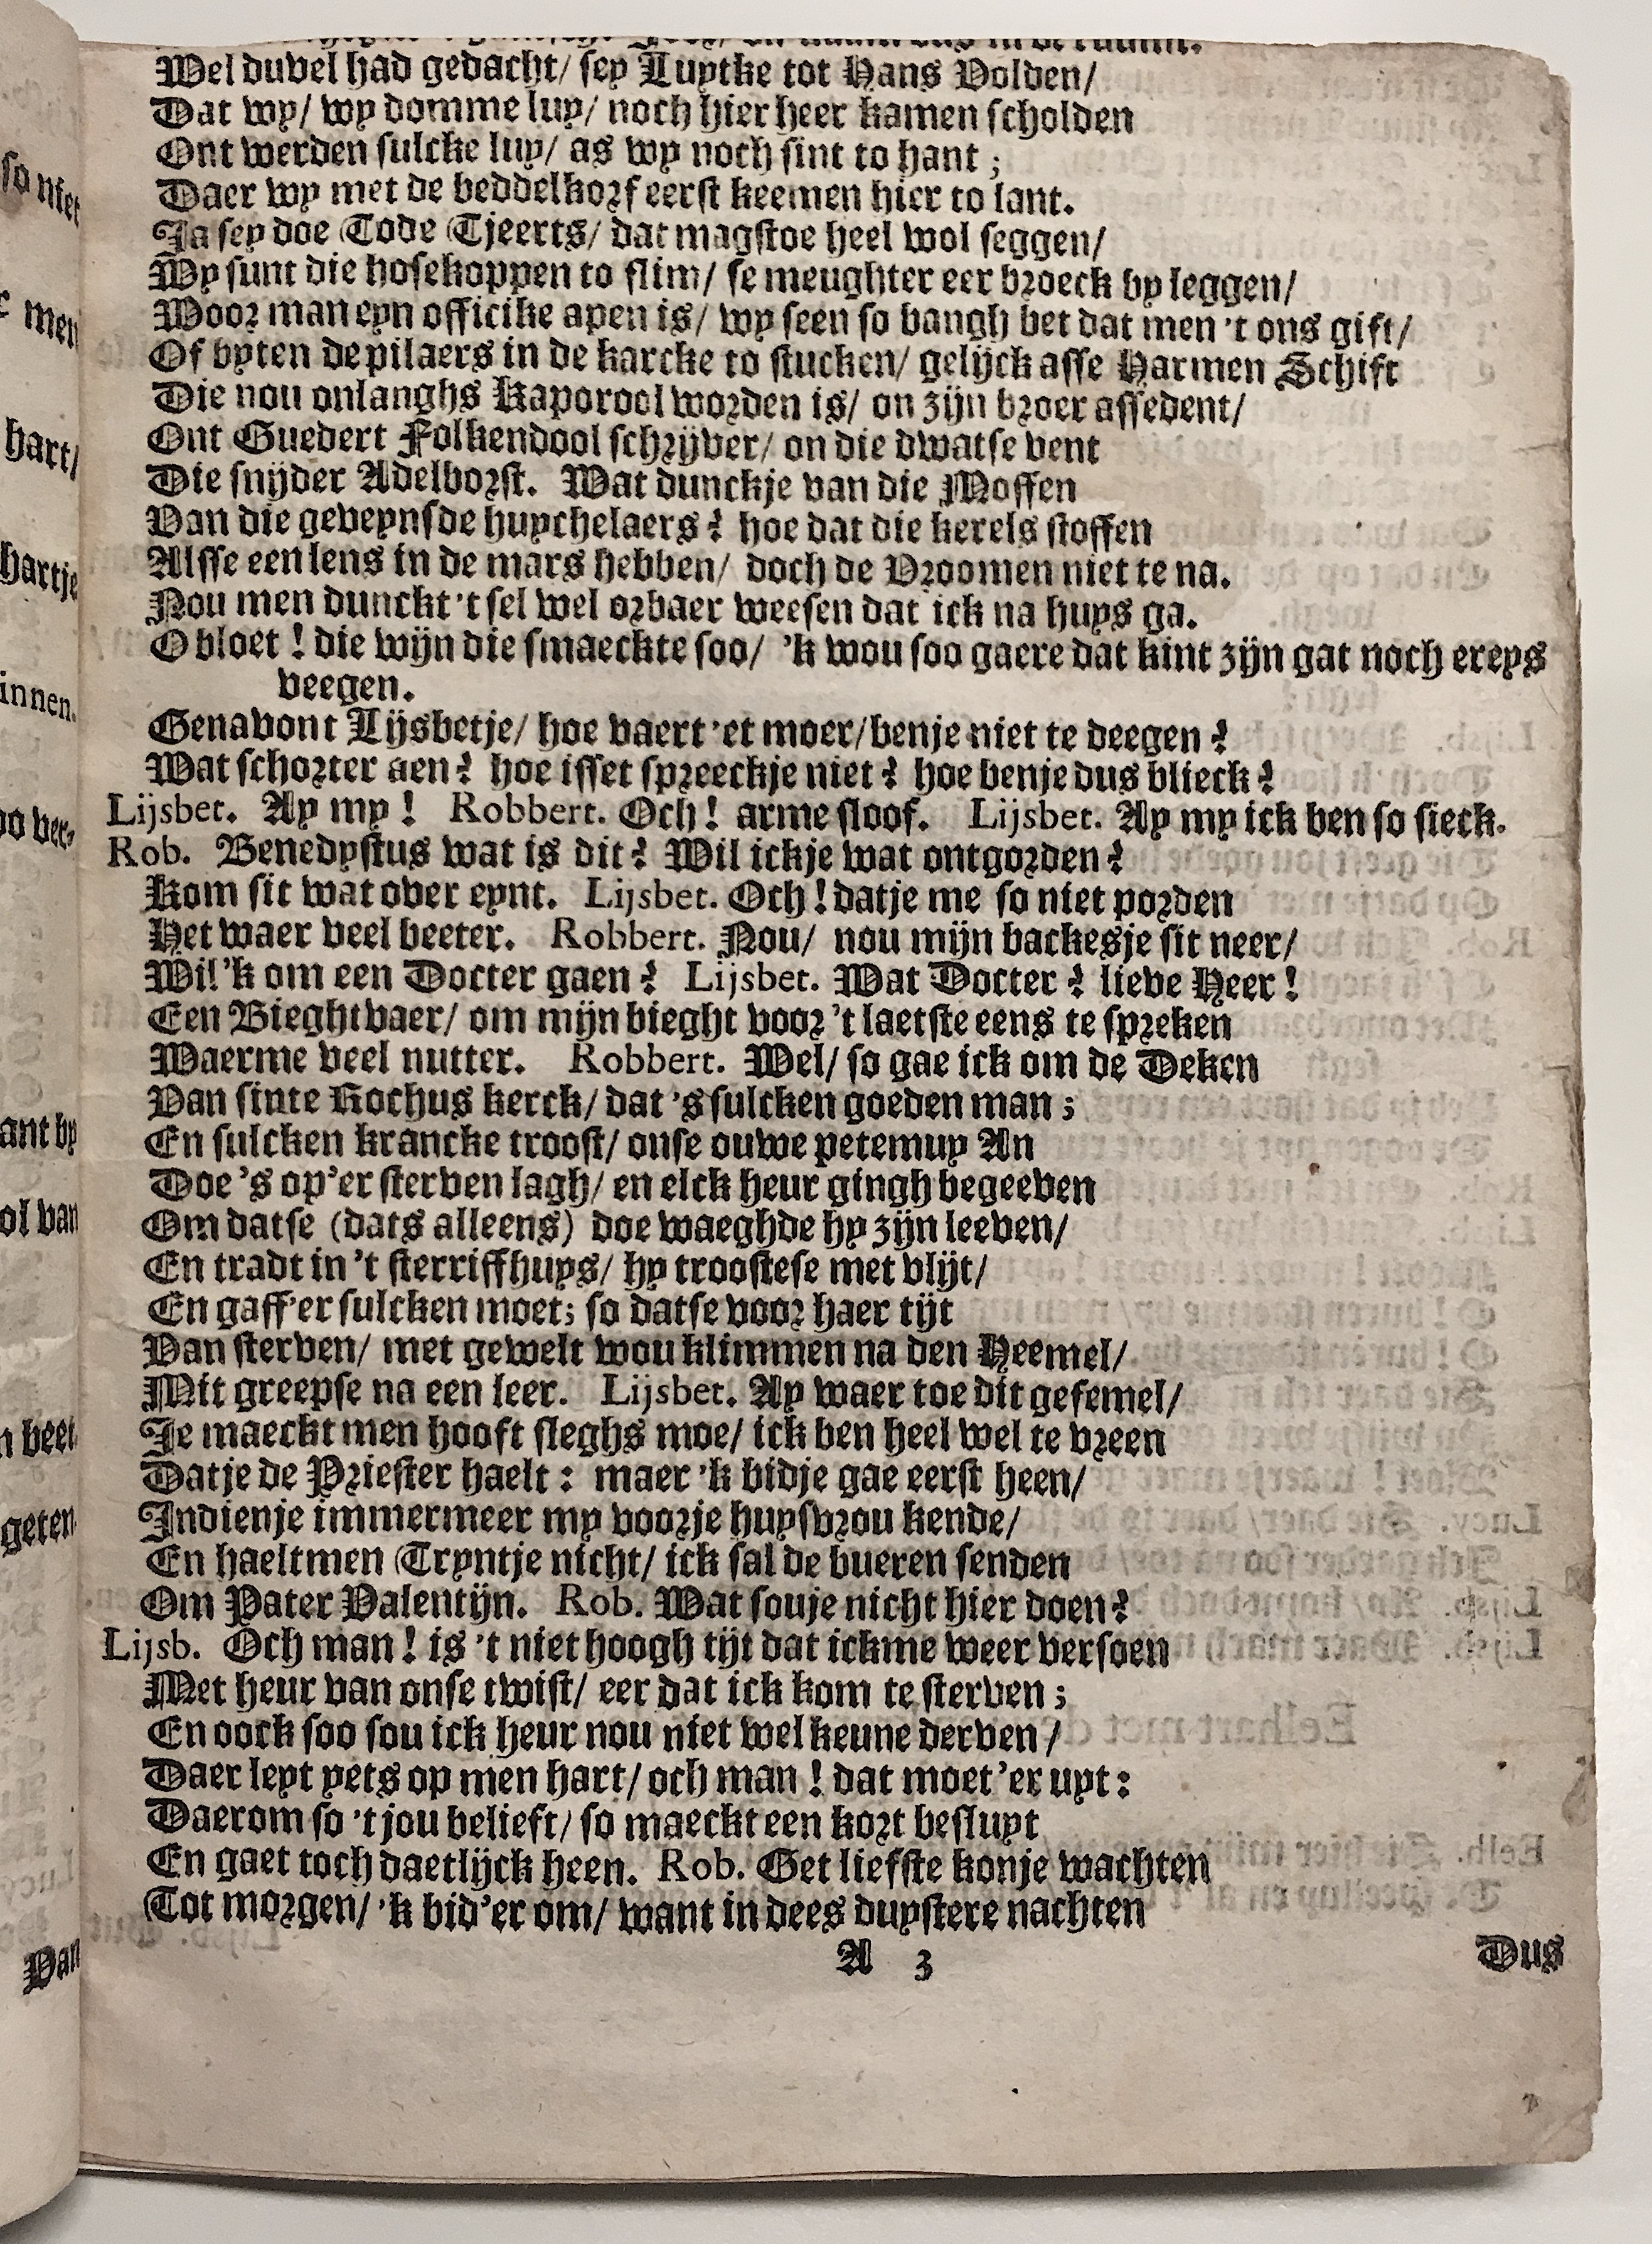 Wel duvel had gedacht/ sey Luytke tot Hans Volden/
Dat wy/ wy domme luy/ noch hier heer kamen scholden
Ont werden sulcke luy/ as wy noch sint to hant ;
Daer wy met de beddelkorf eerst keemen hier to lant.
Ja sey doe Tode Tjeerts/ dat magstoe heel wol seggen/
Wy sunt die hosekoppen to slim/ se meughter eer broeck by leggen/
Woor man eyn officike apen is/ wy seen so bangh bet dat men 't ons gift/
Of byten de pilaers in de karcke to stucken/ gelijck asse Harmen Schift
Die nou onlanghs Kaporool worden is/ on zijn broer assedent/
Ont Guedert Folkendool schrijver/ on die dwatse vent
Die snijder Adelborst. Wat dunckje van die Moffen
Van die geveynsde huychelaers? hoe dat die kerels stoffen
Alsse een lens in de mars hebben/ doch de Vroomen niet te na.
Nou men dunckt 't sel wel orbaer weesen dat ick na huys ga.
O bloet ! die wijn die smaeckte soo/ 'k wou soo gaere dat kint zijn gat noch ereys
veegen.
Genavont Lijsbetje/ hoe vaert 'et moer/ benje niet te deegen?
Wat schorter aen? hoe isset spreeckje niet? hoe benje dus blieck?
Lijsbet. Ay my ! Robbert. Och ! arme sloof. Lijsbet. Ay my ick ben so sieck.
Rob. Benedystus wat is dit? Wil ickje wat ontgorden?
Kom sit wat over eynt. Lijsbet. Och ! datje me so niet porden
Het waer veel beeter. Robbert. Nou/ nou mijn backesje sit neer/
Wil 'k om een Docter gaen? Lijsbet. Wat Docter? lieve Heer !
Een Bieghtvaer/ om mijn bieght voor 't laetste eens te spreken
Waerme veel nutter. Robbert. Wel/ so gae ick om de Deken
Van sinte Rochus kerck/ dat 's sulcken goeden man ;
En sulcken krancke troost/ onse ouwe petemuy An
Doe 's op'er sterven lagh/ en elck heur gingh begeeven
Om datse (dats alleens) doe waeghde hy zijn leeven/
En tradt in 't sterriffhuys/ hy troostese met vlijt/
En gaff'er sulcken moet; so datse voor haer tijt
Van sterven/ met gewelt wou klimmen na den Heemel/
Mit greepse na een leer. Lijsbet. Ay waer toe dit gefemel/
Je maeckt men hooft sleghs moe/ ick ben heel wel te vreen
Datje de Priester haelt : maer 'k bidje gae eerst heen/
Indienje immermeer my voorje huysvrou kende/
En haeltmen Tryntje nicht/ ick sal de bueren senden
Om Pater Valentijn. Rob. Wat souje nicht hier doen?
Lijsb. Och man ! is 't niet hoogh tijt dat ickme weer versoen
Met heur van onse twist/ eer dat ick kom te sterven ;
En oock soo sou ick heur nou niet wel keune derven/
Daer leyt yets op men hart/ och man ! dat moet'er uyt :
Daerom so 't jou belieft/ so maeckt een kort besluyt
En gaet toch daetlijck heen. Rob. Get liefste konje wachten
Tot morgen/ 'k bid'er om/ want in dees duystere nachten
A 3
Dus
so niet
men
hart/
hartje
innen.
ant by
ol van
geten
Van